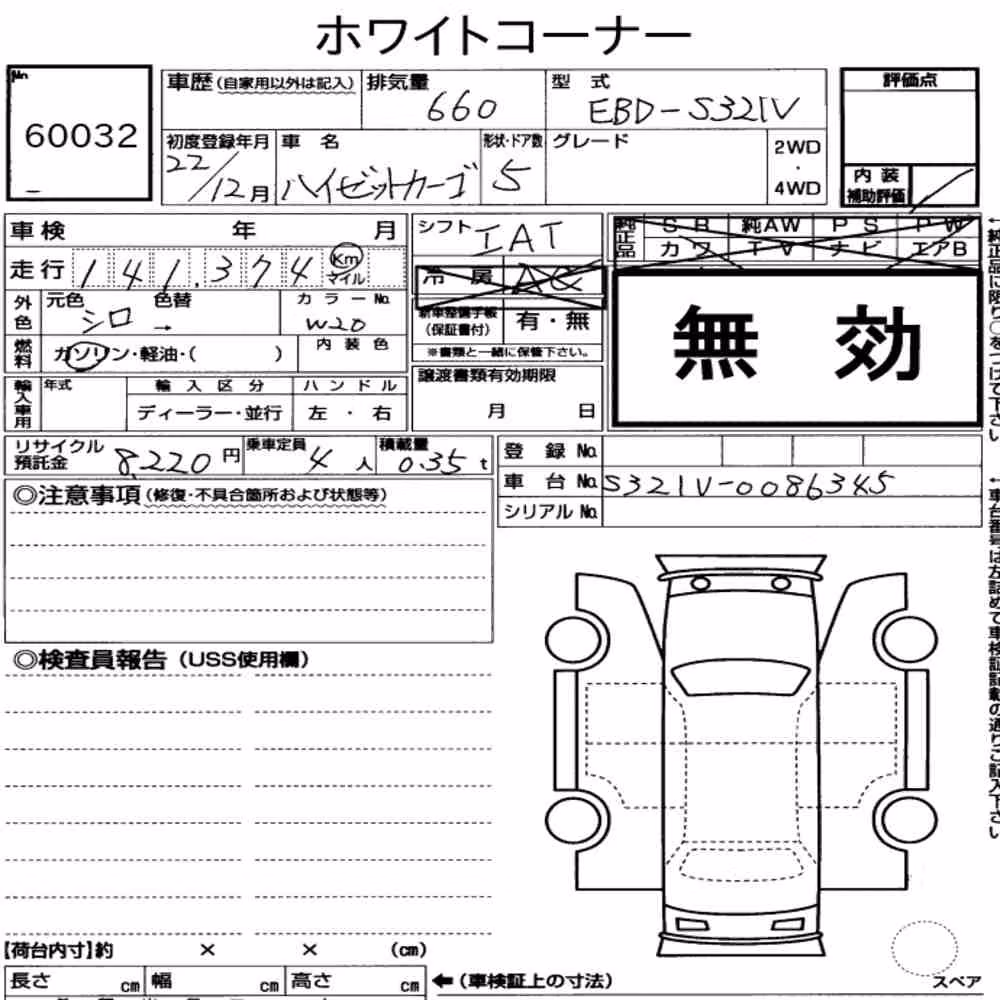 ホワイトコーナー
No.
60032
車歴（自家用以外は記入） 排気量 型 式 評価点
660 EBD-S321V
初度登録年月 車 名 形状・ドア数 グレード 2WD
・
4WD
22/12月 ハイゼットカーゴ 5
内 装
補助評価
車検 年 月 シフト IAT
純正品 SR 純AW PS PW
カワ TV ナビ エアB
走行 141,374 Km
マイル
冷 房 AC
外色 元色 色替 カラーNo.
シロ → W20
新車整備手帳
（保証書付） 有・無
※書類と一緒に保管下さい。
無 効
燃料 ガソリン・軽油・（ ） 内装色
輸入車用 年式 輸入区分 ハンドル
ディーラー・並行 左・右
譲渡書類有効期限
月 日
リサイクル
預託金 8,220円 乗車定員 4人 積載量 0.35t
登 録 No.
車 台 No. S321V-0086345
シリアル No.
◎注意事項（修復・不具合箇所および状態等）
◎検査員報告（USS使用欄）
【荷台内寸】約 × × （cm）
長さ cm 幅 cm 高さ cm ←（車検証上の寸法）
スペア
←純正品に限り○をつけて下さい
←車台番号は左詰めで車検証記載の通りご記入下さい